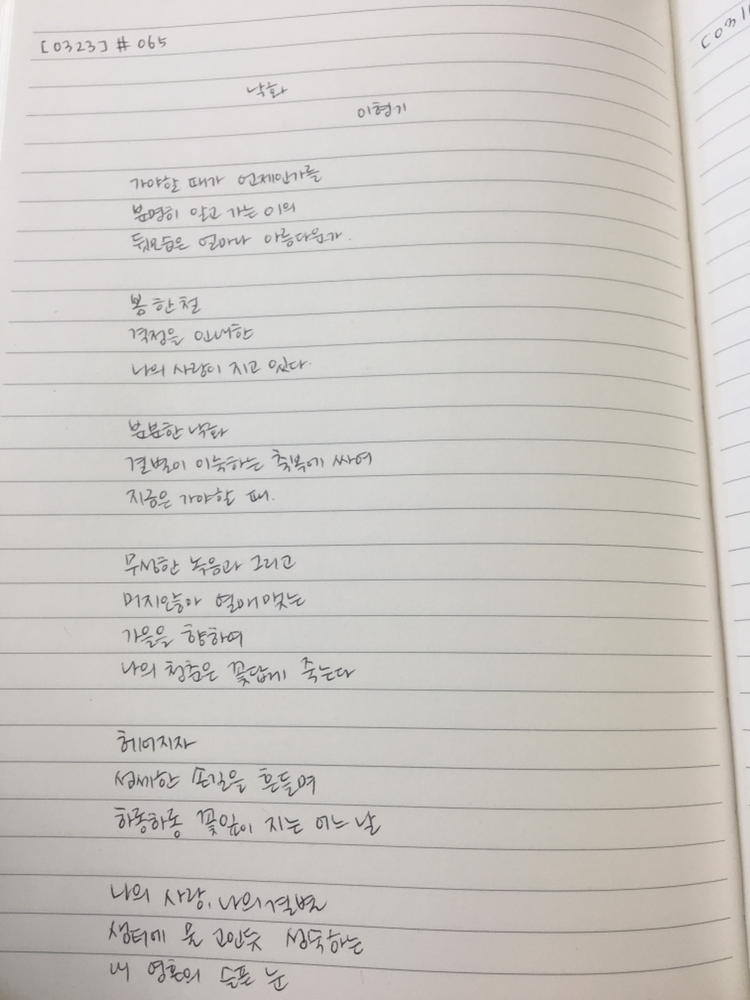 [0323] # 065
낙화
이형기
가야할 때가 언제인가를
분명히 알고 가는 이의
뒷모습은 얼마나 아름다운가.
봄 한철
격정을 인내한
나의 사랑이 지고 있다.
분분한 낙화
결별이 이룩하는 축복에 싸여
지금은 가야할 때.
무성한 녹음과 그리고
머지않아 열매맺는
가을을 향하여
나의 청춘은 꽃답게 죽는다
헤어지자
섬세한 손길을 흔들며
하롱하롱 꽃잎이 지는 어느 날
나의 사랑, 나의 결별
샘터에 물 고인듯 성숙하는
내 영혼의 슬픈 눈